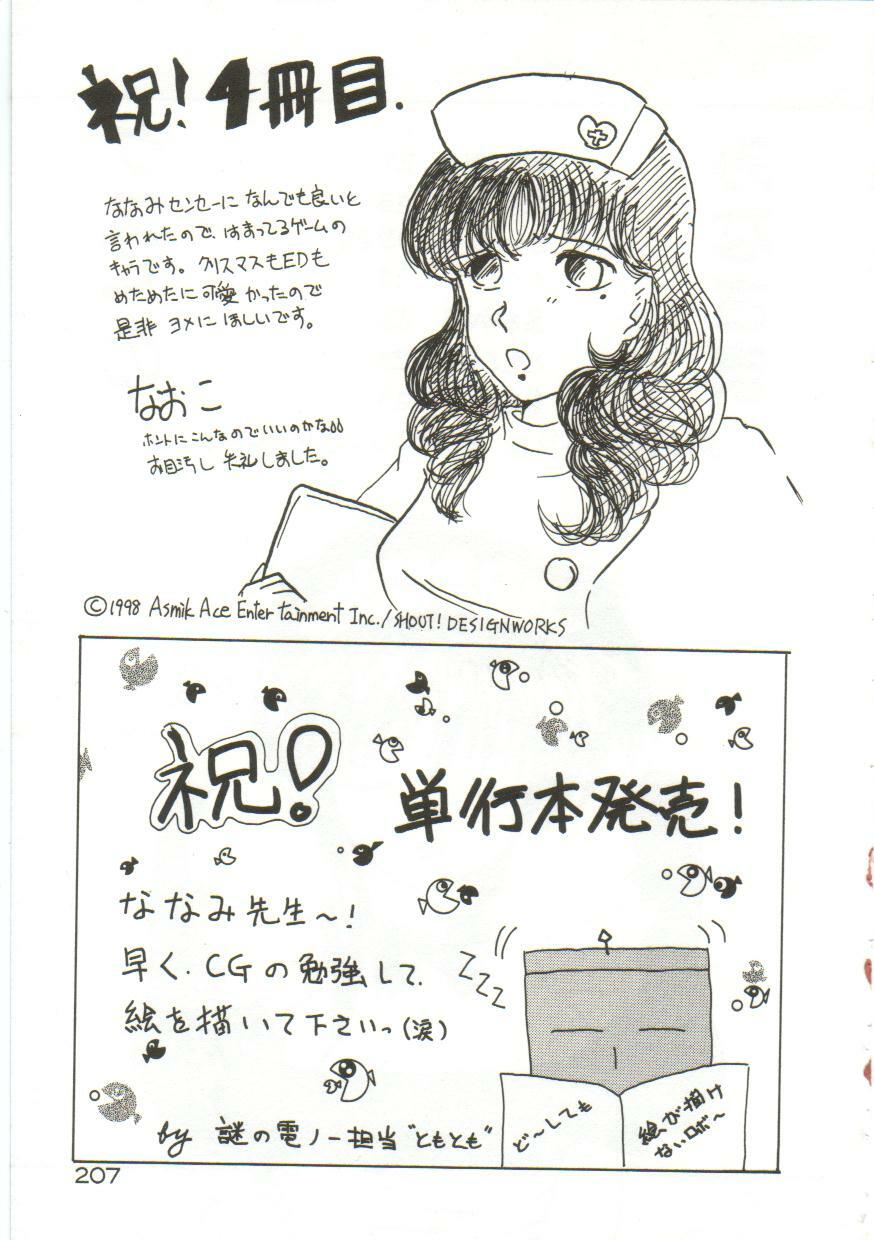 祝!4冊目.
ななみセンセーになんでも良いと
言われたので、はまってるゲームの
キャラです。クリスマスもEDも
めためたに可愛かったので
是非ヨメにほしいです。
なおこ
ホントにこんなのでいいのかな
お目汚し失礼しました。
©1998 Asmik Ace Entertainment Inc./SHOUT! DESIGNWORKS
祝!
単行本発売!
ななみ先生~!
早く、CGの勉強して、
絵を描いて下さいっ(涙)
ZZZZ
by 謎の電ノー担当"ともとも"
ど~しても
絵が描け
ないロボ~
207